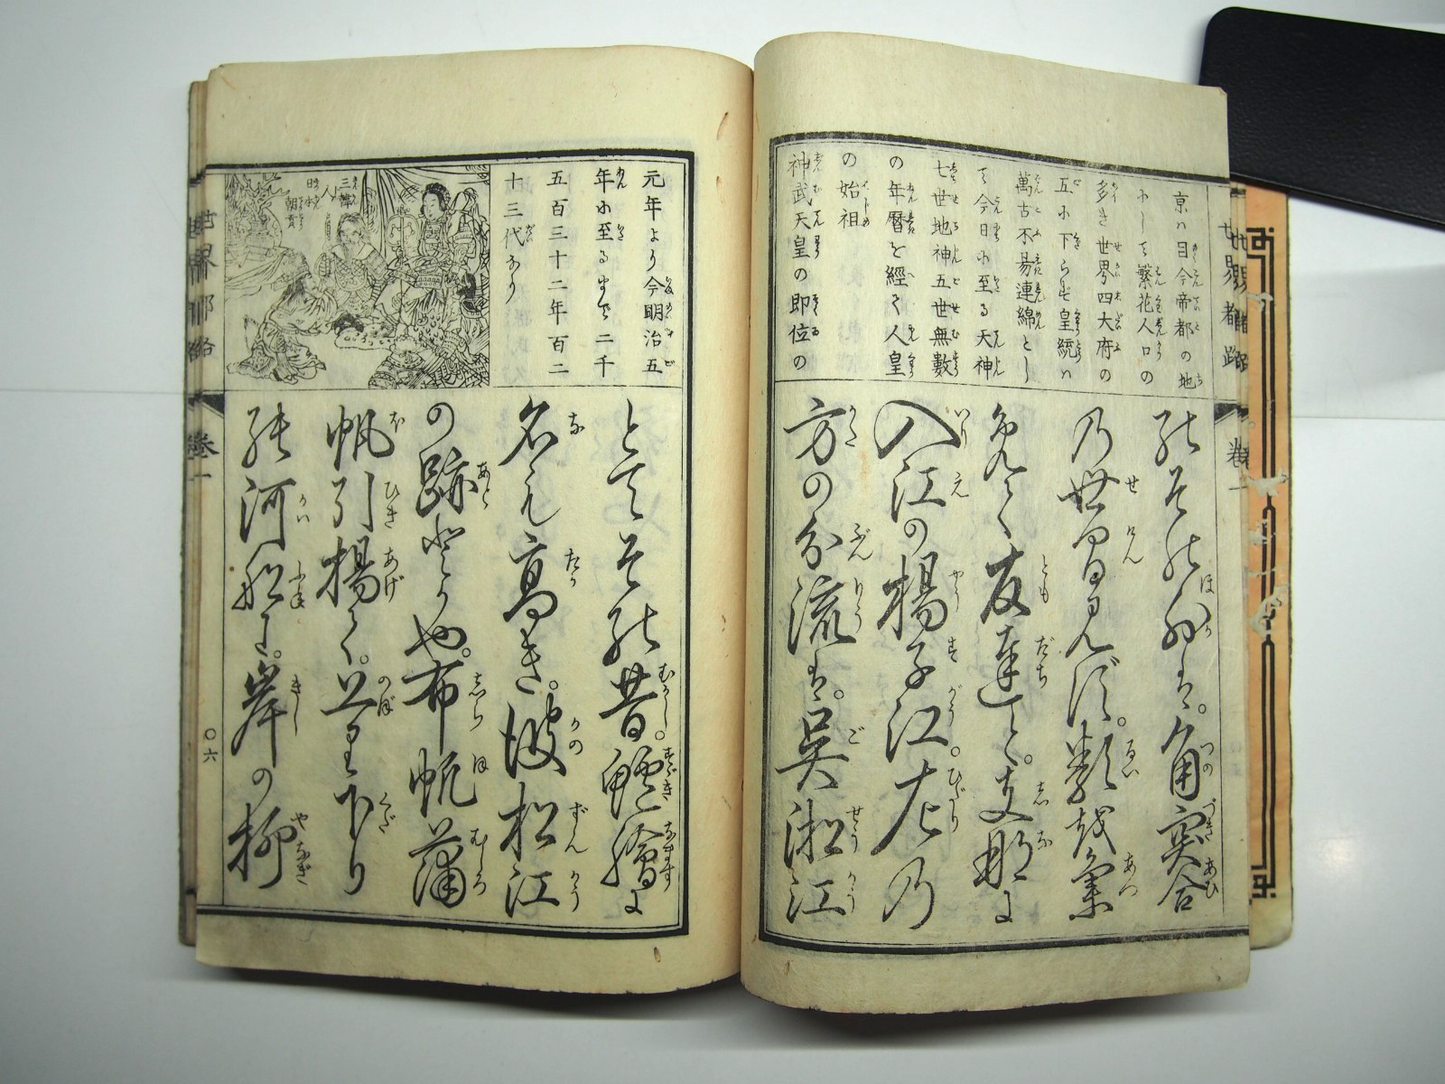 世界都路
巻一
京ハ目今帝都の地
にして繁花人口の
多き世界四大府の
五に下らず皇統ハ
萬古不易連綿とし
て今日に至る天神
七世地神五世無數
の年曆を經て人皇
の始祖
神武天皇の即位の
乃世間見ず。類を集
免て友達と。支那に
入江の楊子江。左乃
方の分流は。吳淞江
元年より今明治五
年に至るまで二千
五百三十二年百二
十三代なり
三韓人
日本
朝貢
とてその昔。鱸膾に
名も高き。彼松江
の跡とかや。布帆蒲
帆引揚て。上り下り
河船に。岸の柳
世界都路
巻一
〇六